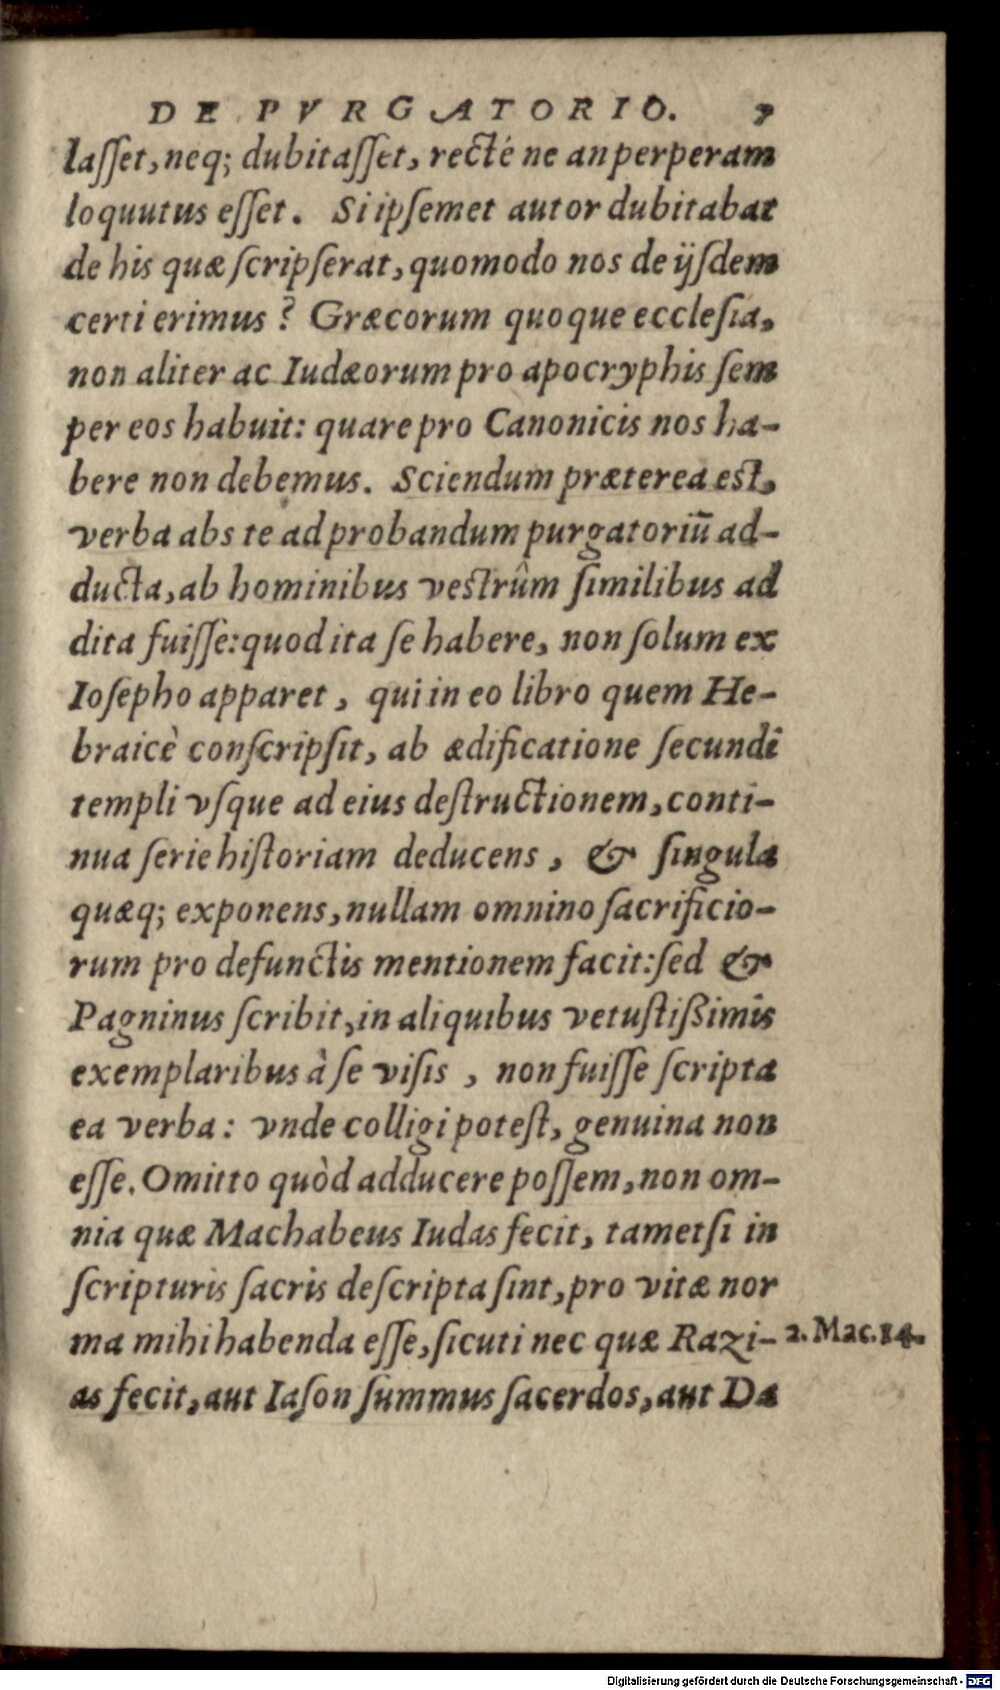 DE PVRGATORIO. 7
laſſet, neq; dubitaſſet, recté ne an perperam
loquutus eſſet. Si ipſemet autor dubitabat
de his quæ ſcripſerat, quomodo nos de ijſdem
certi erimus? Græcorum quoque eccleſia,
non aliter ac Iudæorum pro apocryphis ſem
per eos habuit: quare pro Canonicis nos ha-
bere non debemus. Sciendum præterea eſt,
verba abs te ad probandum purgatoriū ad-
ducta, ab hominibus veſtrûm ſimilibus ad
dita fuiſſe: quod ita ſe habere, non ſolum ex
Ioſepho apparet, qui in eo libro quem He-
braicè conſcripſit, ab ædificatione ſecundi
templi vſque ad eius deſtructionem, conti-
nua ſerie hiſtoriam deducens, & ſingula
quæq; exponens, nullam omnino ſacrificio-
rum pro defunctis mentionem facit: ſed &
Pagninus ſcribit, in aliquibus vetuſtißimis
exemplaribus à ſe viſis, non fuiſſe ſcripta
ea verba: vnde colligi poteſt, genuina non
eſſe. Omitto quòd adducere poſſem, non om-
nia quæ Machabeus Iudas fecit, tametſi in
ſcripturis ſacris deſcripta ſint, pro vitæ nor
ma mihi habenda eſſe, ſicuti nec quæ Razi-
2. Mac. 14.
as fecit, aut Iaſon ſummus ſacerdos, aut Da
Digitalisierung gefördert durch die Deutsche Forschungsgemeinschaft - DFG